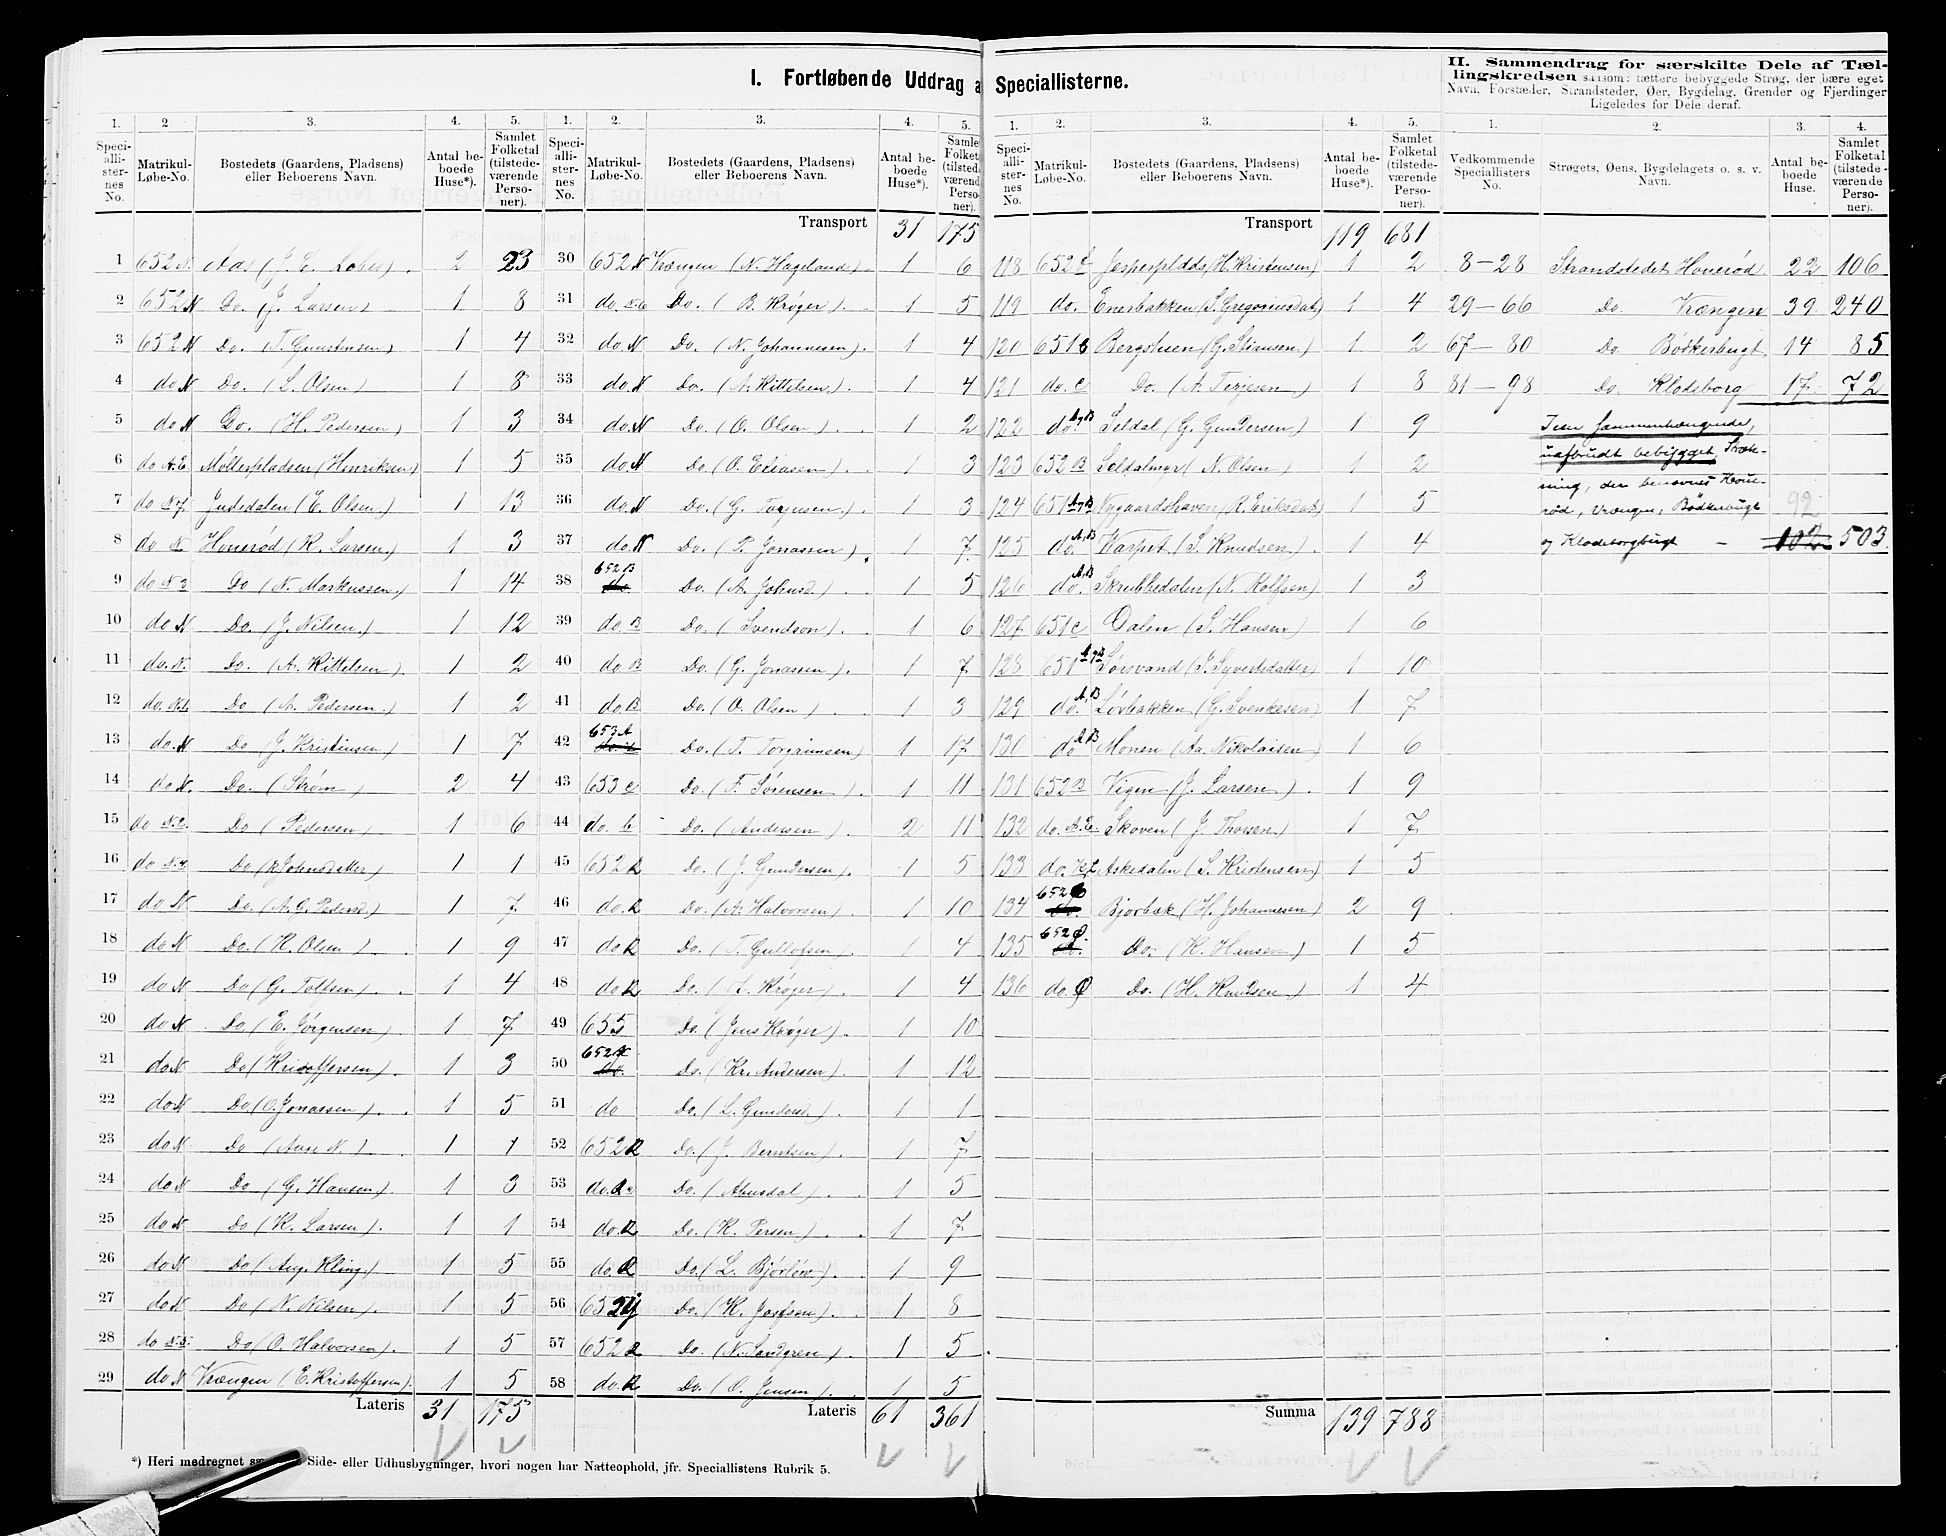 I. Fortløbende Uddrag a Speciallisterne.
II. Sammendrag for særskilte Dele af Tæl-
lingskredsen saasom: tættere bebyggede Strøg, der bære eget
Navn, Forstæder, Strandsteder, Øer, Bygdelag, Grender og Fjerdinger
Ligeledes for Dele deraf.
1. 2 3. 4. 5. 1. 2. 3. 4. 5.
Speci-alli-ster-nes No. Matrikul-Løbe-No. Bostedets (Gaardens, Pladsens) eller Beboerens Navn. Antal be-boede Huse*). Samlet Folketal (tilstede-værende Perso-ner).
Speci-alli-ster-nes No. Matrikul-Løbe-No. Bostedets (Gaardens, Pladsens) eller Beboerens Navn. Antal be-boede Huse*). Samlet Folketal (tilstede-værende Perso-ner)
Transport 31 175
1 652 N. Aas (J. E. Lober) 2 23 30 652 N Vrængen (N. Hageland) 1 6
2 652 N Do. (J. Larsen) 1 8 31 do. Do. (B. Krøger) 1 5
3 652 N Do. (T. Gunstensen) 1 4 32 do N Do. (N. Johannesen) 1 4
4 do N Do. (L. Olsen) 1 8 33 do. N Do. (A. Kittelsen) 1 4
5 do N Do. (H. Pedersen) 1 3 34 do. N Do. (O. Olsen) 1 2
6 do A.E. Møllerpladsen (Henriksen) 1 5 35 do. N Do. (O. Eliasen) 1 3
7 do N7 Judedalen (E. Olsen) 1 13 36 do. N Do. (G. Torjusen) 1 3
8 do N Honerød (K. Larsen.) 1 3 37 do. N Do. (P. Jonassen) 7
9 do N3 Do (N. Markussen.) 1 14 38 652 B do Do. (A. Johnsd.) 1 5
10 do N Do. (J. Nilsen.) 1 12 39 do. B Do. (Svendson) 1 6
11 do. N. Do. (A. Kittelsen) 1 2 40 do. B Do. (G. Jonassen) 1 7
12 do. N.1. Do (A. Pedersen.) 1 2 41 do. B Do. (O. Olsen) 1 3
13 do. N Do J. Kristinsen) 1 7 42 653 A Do. (T. Torgrimsen) 1 17
14 do N. Do. (Strøm) 2 4 43 653 c Do. (F. Sørensen) 1 11
15 do N.2. Do (Pedersen) 1 6 44 do. Do. (Andersen) 2 11
16 do N.4. Do (Johnsdatter) 1 1 45 652 R Do. (J. Gundersen) 1 5
17 do N Do. (A. G. Pedersd.) 1 7 46 do. R Do. (A. Halvorsen) 1 10
18 do N Do. (K. Olsen) 1 9 47 do R Do. (T. Gullofsen) 1 4
19 do N Do (G. Tollsen) 1 4 48 do R Do. (Krøger) 1 4
20 do N Do (E. Jørgensen) 1 7 49 655 Do. (Jens Krøger) 1 10
21 do N Do (Kristoffersen) 1 3 50 652 X do. Do. (Kr. Andersen) 1 12
22 do N Do. (O. Jonassen) 1 5 51 do Do. (L. Gundersd.) 1 1
23 do N Do (Anne N.) 1 1 52 652 R Do. (J. Berntsen) 1 7
24 do N Do (G. Hansen) 1 3 53 do. R Do. (Abusdal) 1 5
25 do N Do (K. Larsen) 1 1 54 do. R Do. (K. Persen) 1 7
26 do N Do (Aug. Kling) 1 5 55 do. R Do. (L. Bjørløw) 1 9
27 do N Do (N. Nilsen) 1 5 56 652 Y Do. (K. Josefsen) 1 8
28 do N.5. Do (O. Halvorsen) 1 5 57 652 R Do. (N. Sandgren) 1 5
29 do N Vrængen (E. Kristoffersen) 1 5 58 do. R Do. (O. Jensen) 1 5
Lateris 31 175 Lateris 61 361
*) Heri medregnet Side- eller Udhusbygninger, hvori nogen har Natteophold, jfr. Speciallistens Rubrik 5.
1. 2. 3. 4. 5. 1. 2. 3. 4.
Speci-alli-ster-nes No. Matrikul-Løbe-No. Bostedets (Gaardens, Pladsens) eller Beboerens Navn. Antal be-boede Huse*). Samlet Folketal (tilstede-værende Perso-ner).
Vedkommende Speciallisters No. Strøgets, Øens, Bygdelagets o. s. v. Navn. Antal be-boede Huse. Samlet Folketal (tilstede-værende Perso-ner).
Transport 119 681
118 652 Jesperplads (H. Kristensen) 1 2 8-28 Strandstedet Honerød 22 106
119 do. Enerbakken (S. Gregoriusdat) 1 4 29-66 Do. Vrængen 39 240
120 651 c Bergstuen (G. Stiansen) 1 2 67-80 Do Bødkerbugt 14 85
121 do. c Do. (A. Terjesen) 1 8 81-98 Do. Klodeborg 17 72
122 do. A,B Seldal (G. Gundersen) 1 9 Isen sammenhængende,
123 652 B Seldalmyr (N. Olsen) 1 2 uafbrudt bebygget, Stræk-
124 651 A,B Nygaardshaven (R. Eriksdat) 1 5 ning, der benævnes Hone-
rød, Vrængen, Bødkerbugt 92
125 do. A,B Warpet (S. Knudsen) 1 4 og Klodeborgbugt - 102 503.
126 do. A,B Skrubbedalen (N. Rolfsen) 1 3
127 651 c Dalen (S. Hansen) 1 6
128 651 A,B Sørsvand (J. Syvertsdatter) 1 10
129 do. A,B Løvbakken (G. Svenkesen) 1 7
130 do B Monen (Aa. Nikolaisen) 1 6
131 652 B Vigen (J. Larsen) 1 9
132 do. A.E Skoven (J. Thorsen.) 1 7
133 do. Askedalen (S. Kristensen) 1 5
134 652 do. Bjorbæk (H. Johannesen) 2 9
135 652 Ø. do. Do. (K. Hansen) 1 5
136 do. Ø Do. (H. Knudsen) 1 4
Summa 139 788